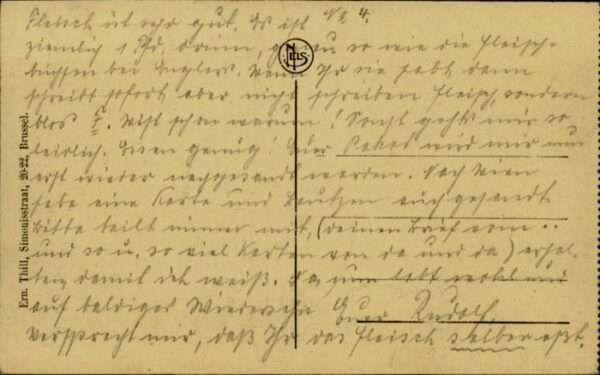 Fleisch ist sehr gut. Es ist Nr. 4.
ziemlich 1 Pfd. drinn, genau so wie die Fleisch-
büchsen bei Englers. Wenn Ihr sie habt dann
schreibt sofort aber nicht schreiben Fleisch, sondern
blos F. Wißt schon warum! Sonst gehts mir so
leidlich. Essen genug! Euer Paket wird mir nun
erst wieder nachgesandt werden. Nach Wien
habe eine Karte und Bautzen auch gesandt.
Bitte teilt immer mit, (deinen Brief vom ..
und so u. so viel Karten von da und da) erhal-
ten, damit ich weiß. Na, nun lebt wohl und
auf baldiges Wiedersehn Euer Rudolf.
Versprecht mir, daß Ihr das Fleisch selber eßt.
NELS
Ern. Thill, Simonisstraat, 20-22, Brussel.